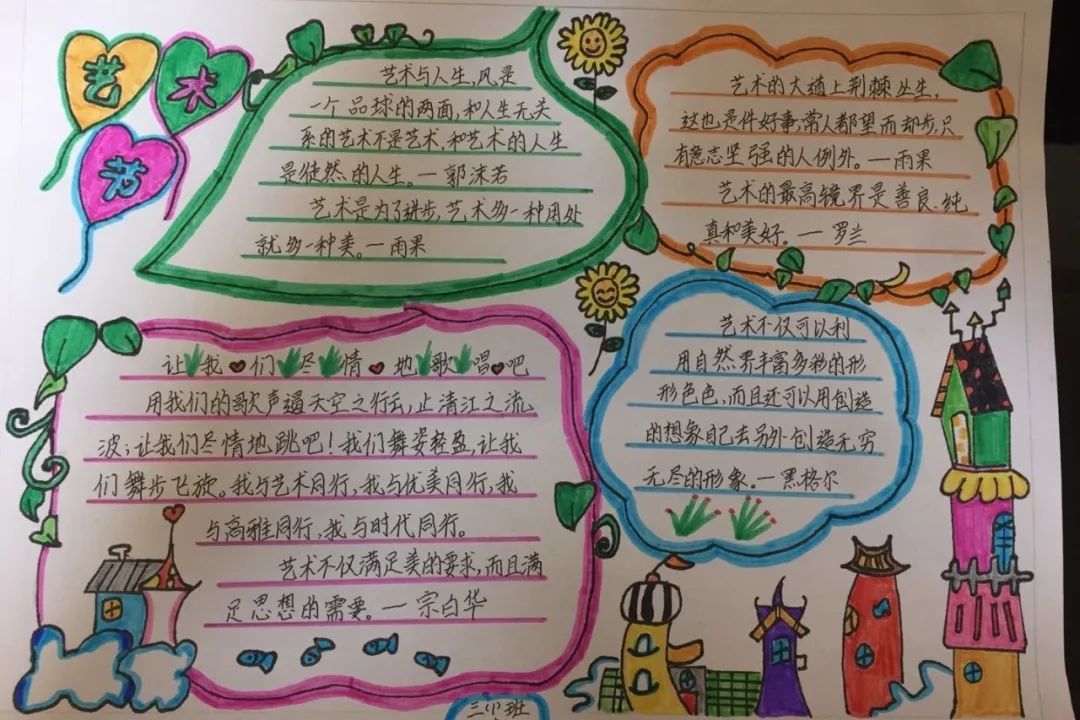 艺
术
节
艺术与人生,风是
一个品球的两面,和人生无关
系的艺术不是艺术,和艺术的人生
是徒然的人生。—郭沫若
艺术是为了进步,艺术多一种用处
就多一种美。—雨果
艺术的大道上荆棘丛生,
这也是件好事,常人都望而却步,只
有意志坚强的人例外。—雨果
艺术的最高镜界是善良、纯
真和美好。—罗兰
让我们尽情地歌唱吧
用我们的歌声遏天空之行云,止清江之流
波;让我们尽情地跳吧!我们舞姿轻盈,让我
们舞步飞放。我与艺术同行,我与优美同行,我
与高雅同行,我与时代同行。
艺术不仅满足美的要求,而且满
足思想的需要。—宗白华
艺术不仅可以利
用自然界丰富多彩的形
形色色,而且还可以用创造
的想象自己去另外创造无穷
无尽的形象。—黑格尔
三 班